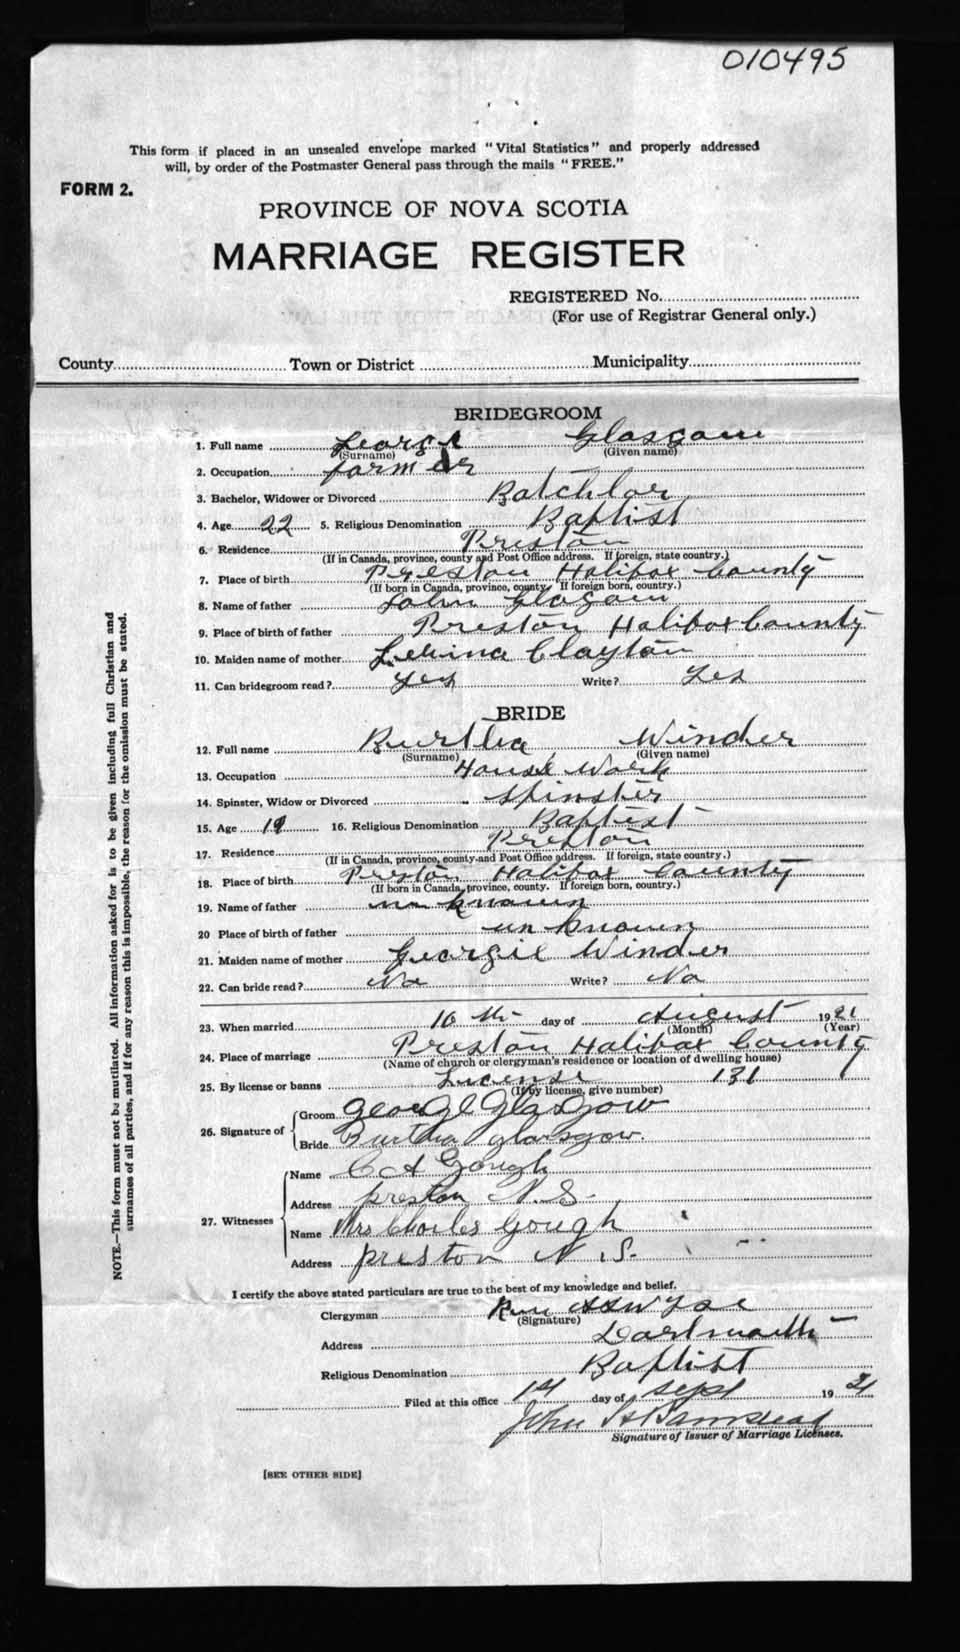 010495
This form if placed in an unsealed envelope marked "Vital Statistics" and properly addressed
will, by order of the Postmaster General pass through the mails "FREE."
FORM 2.
PROVINCE OF NOVA SCOTIA
MARRIAGE REGISTER
REGISTERED No.
(For use of Registrar General only.)
County Town or District Municipality
BRIDEGROOM
1. Full name George Glasgow
(Surname) (Given name)
2. Occupation farmer
3. Bachelor, Widower or Divorced Batchlor
4. Age 22 5. Religious Denomination Baptist
6. Residence Preston
(If in Canada, province, county and Post Office address. If foreign, state country.)
7. Place of birth Preston Halifax County
(If born in Canada, province, county. If foreign born, country.)
8. Name of father John Glasgow
9. Place of birth of father Preston Halifax County
10. Maiden name of mother Clayton
11. Can bridegroom read? yes Write? Yes
BRIDE
12. Full name Burtha Winder
(Surname) (Given name)
13. Occupation House Work
14. Spinster, Widow or Divorced Spinster
15. Age 19 16. Religious Denomination Baptist
17. Residence Preston
(If in Canada, province, county and Post Office address. If foreign, state country.)
18. Place of birth Preston Halifax County
(If born in Canada, province, county. If foreign born, country.)
19. Name of father un known
20 Place of birth of father un known
21. Maiden name of mother Georgie Winder
22. Can bride read? No Write? No
23. When married 10 th day of August 1921
(Month) (Year)
24. Place of marriage Preston Halifax County
(Name of church or clergyman's residence or location of dwelling house)
25. By license or banns License 131
(If by license, give number)
26. Signature of
Groom George Glasgow
Bride Burtha Glasgow.
27. Witnesses
Name C A Gough
Address preston N.S.
Name Mrs Charles Gough
Address preston N.S.
I certify the above stated particulars are true to the best of my knowledge and belief.
Clergyman
(Signature)
Address Dartmouth
Religious Denomination Baptist
Filed at this office 1st day of Sept 1921
John
Signature of Issuer of Marriage Licenses.
[SEE OTHER SIDE]
NOTE.—This form must not be mutilated. All information asked for is to be given including full Christian and
surnames of all parties, and if for any reason this is impossible, the reason for the omission must be stated.